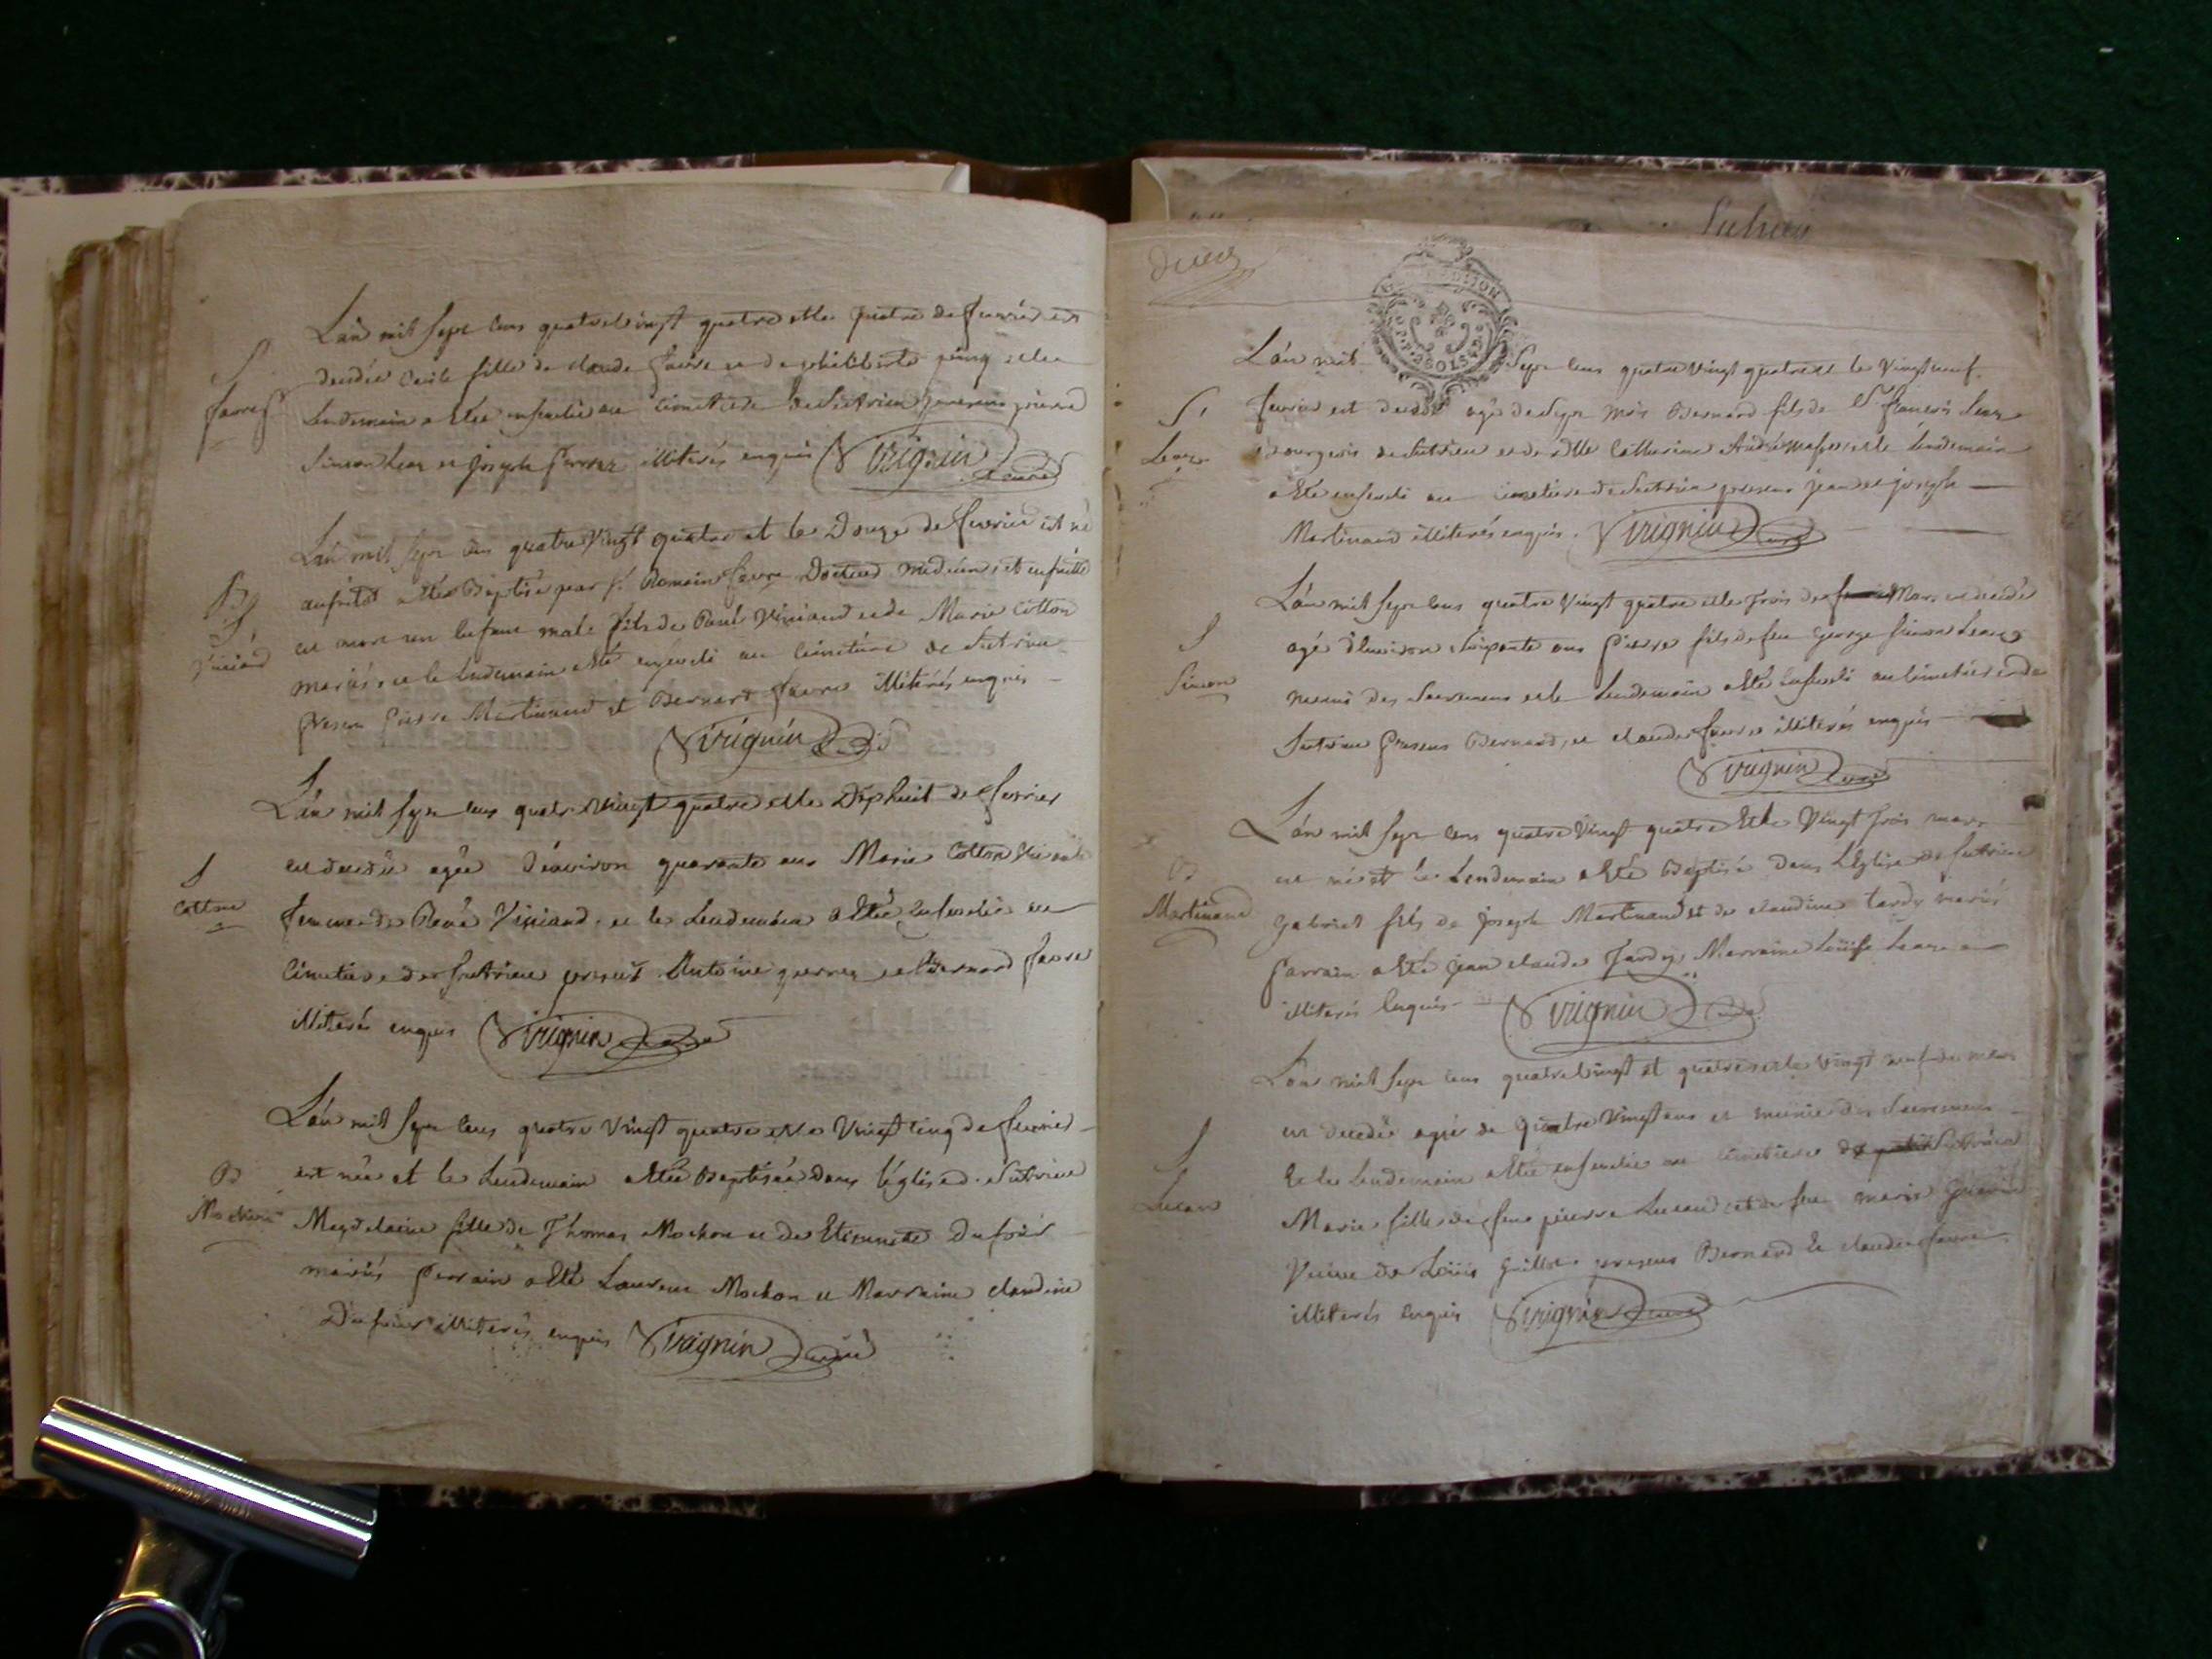 L'an mil sept cens quatrevingt quatre et le quatre de fevrier est
decedée fille de claude favre et de philiberte et le
S
favre
lendemain a Eté ensevelie au cimetiere de Sutrieu presens pierre
Simon Leaz et Joseph illiterés enquis Virignin curé
L'an mil sept cens quatre Vingt quatre et le Douze de fevrier est né
aussitôt a Eté Baptisé par Sr. Romain favre Docteur medecin et ensuitte
B S
Viniand
est mort un Enfant male fils de Paul Viniand et de Marie Cotton
mariés, et le lendemain a Eté enseveli au Cimetiere de Sutrieu
presens Pierre Martinand et Bernard favre illiterés enquis
Virignin curé
L'an mil sept cens quatre Vingt quatre et le Dixhuit de fevrier
est decedée agée d'environ quarante ans Marie Cotton
S
Cotton
femme de Viniand et le Lendemain a Eté Ensevelie au
Cimetiere de Sutrieu presens Antoine et Bernard favre
illiterés enquis Virignin curé
L'an mil sept cens quatre Vingt quatre et le Vingt cinq de fevrier
est née et le Lendemain a Eté Baptisée dans l'église de Sutrieu
B
Mochon
Magdelaine fille de Thomas Mochon et de Etiennette Dufour
mariés parrain a Eté Laurent Mochon et Marraine claudine
Dufour illiterés enquis Virignin curé
L'an mil Sept cens quatre Vingt quatre et le Vingt neuf
fevrier est decedé agé de Sept mois Bernard fils de Sr françois Leaz
S
Leaz
Bourgeois de Sutrieu et de dlle Catherine et le lendemain
a Eté enseveli au Cimetiere de Sutrieu presens jean et joseph
Martinand illiterés enquis. Virignin curé
L'an mil sept cens quatre Vingt quatre et le trois de Mars est decedé
agé d'environ soixante ans Pierre fils de feu George Simon Leaz
S
Simon
munis des Sacremens et le Lendemain a Eté Enseveli au Cimetiere de
Sutrieu Presens Bernard, et claude favre illiterés enquis
Virignin curé
L'an mil sept cens quatre Vingt quatre Et le Vingt trois mars
est né et le Lendemain a Eté Baptisé Dans L'Eglise de Sutrieu
B
Martinand
Gabriel fils de Joseph Martinand et de claudine tardy mariés
Parrain a Eté jean claude Tardy, Marraine Loüise Leaz
illiterés Enquis Virignin curé
L'an mil sept cens quatre vingt et quatre et le Vingt neuf de mars
est decedée agée de quatre Vingt ans et munie des Sacremens
S
Et le Lendemain a Eté ensevelie au cimetiere de Sutrieu
Marie fille de feu pierre et de feu marie
Veuve de Loüis Guillot presens Bernard Et claude favre
illiterés Enquis Virignin curé